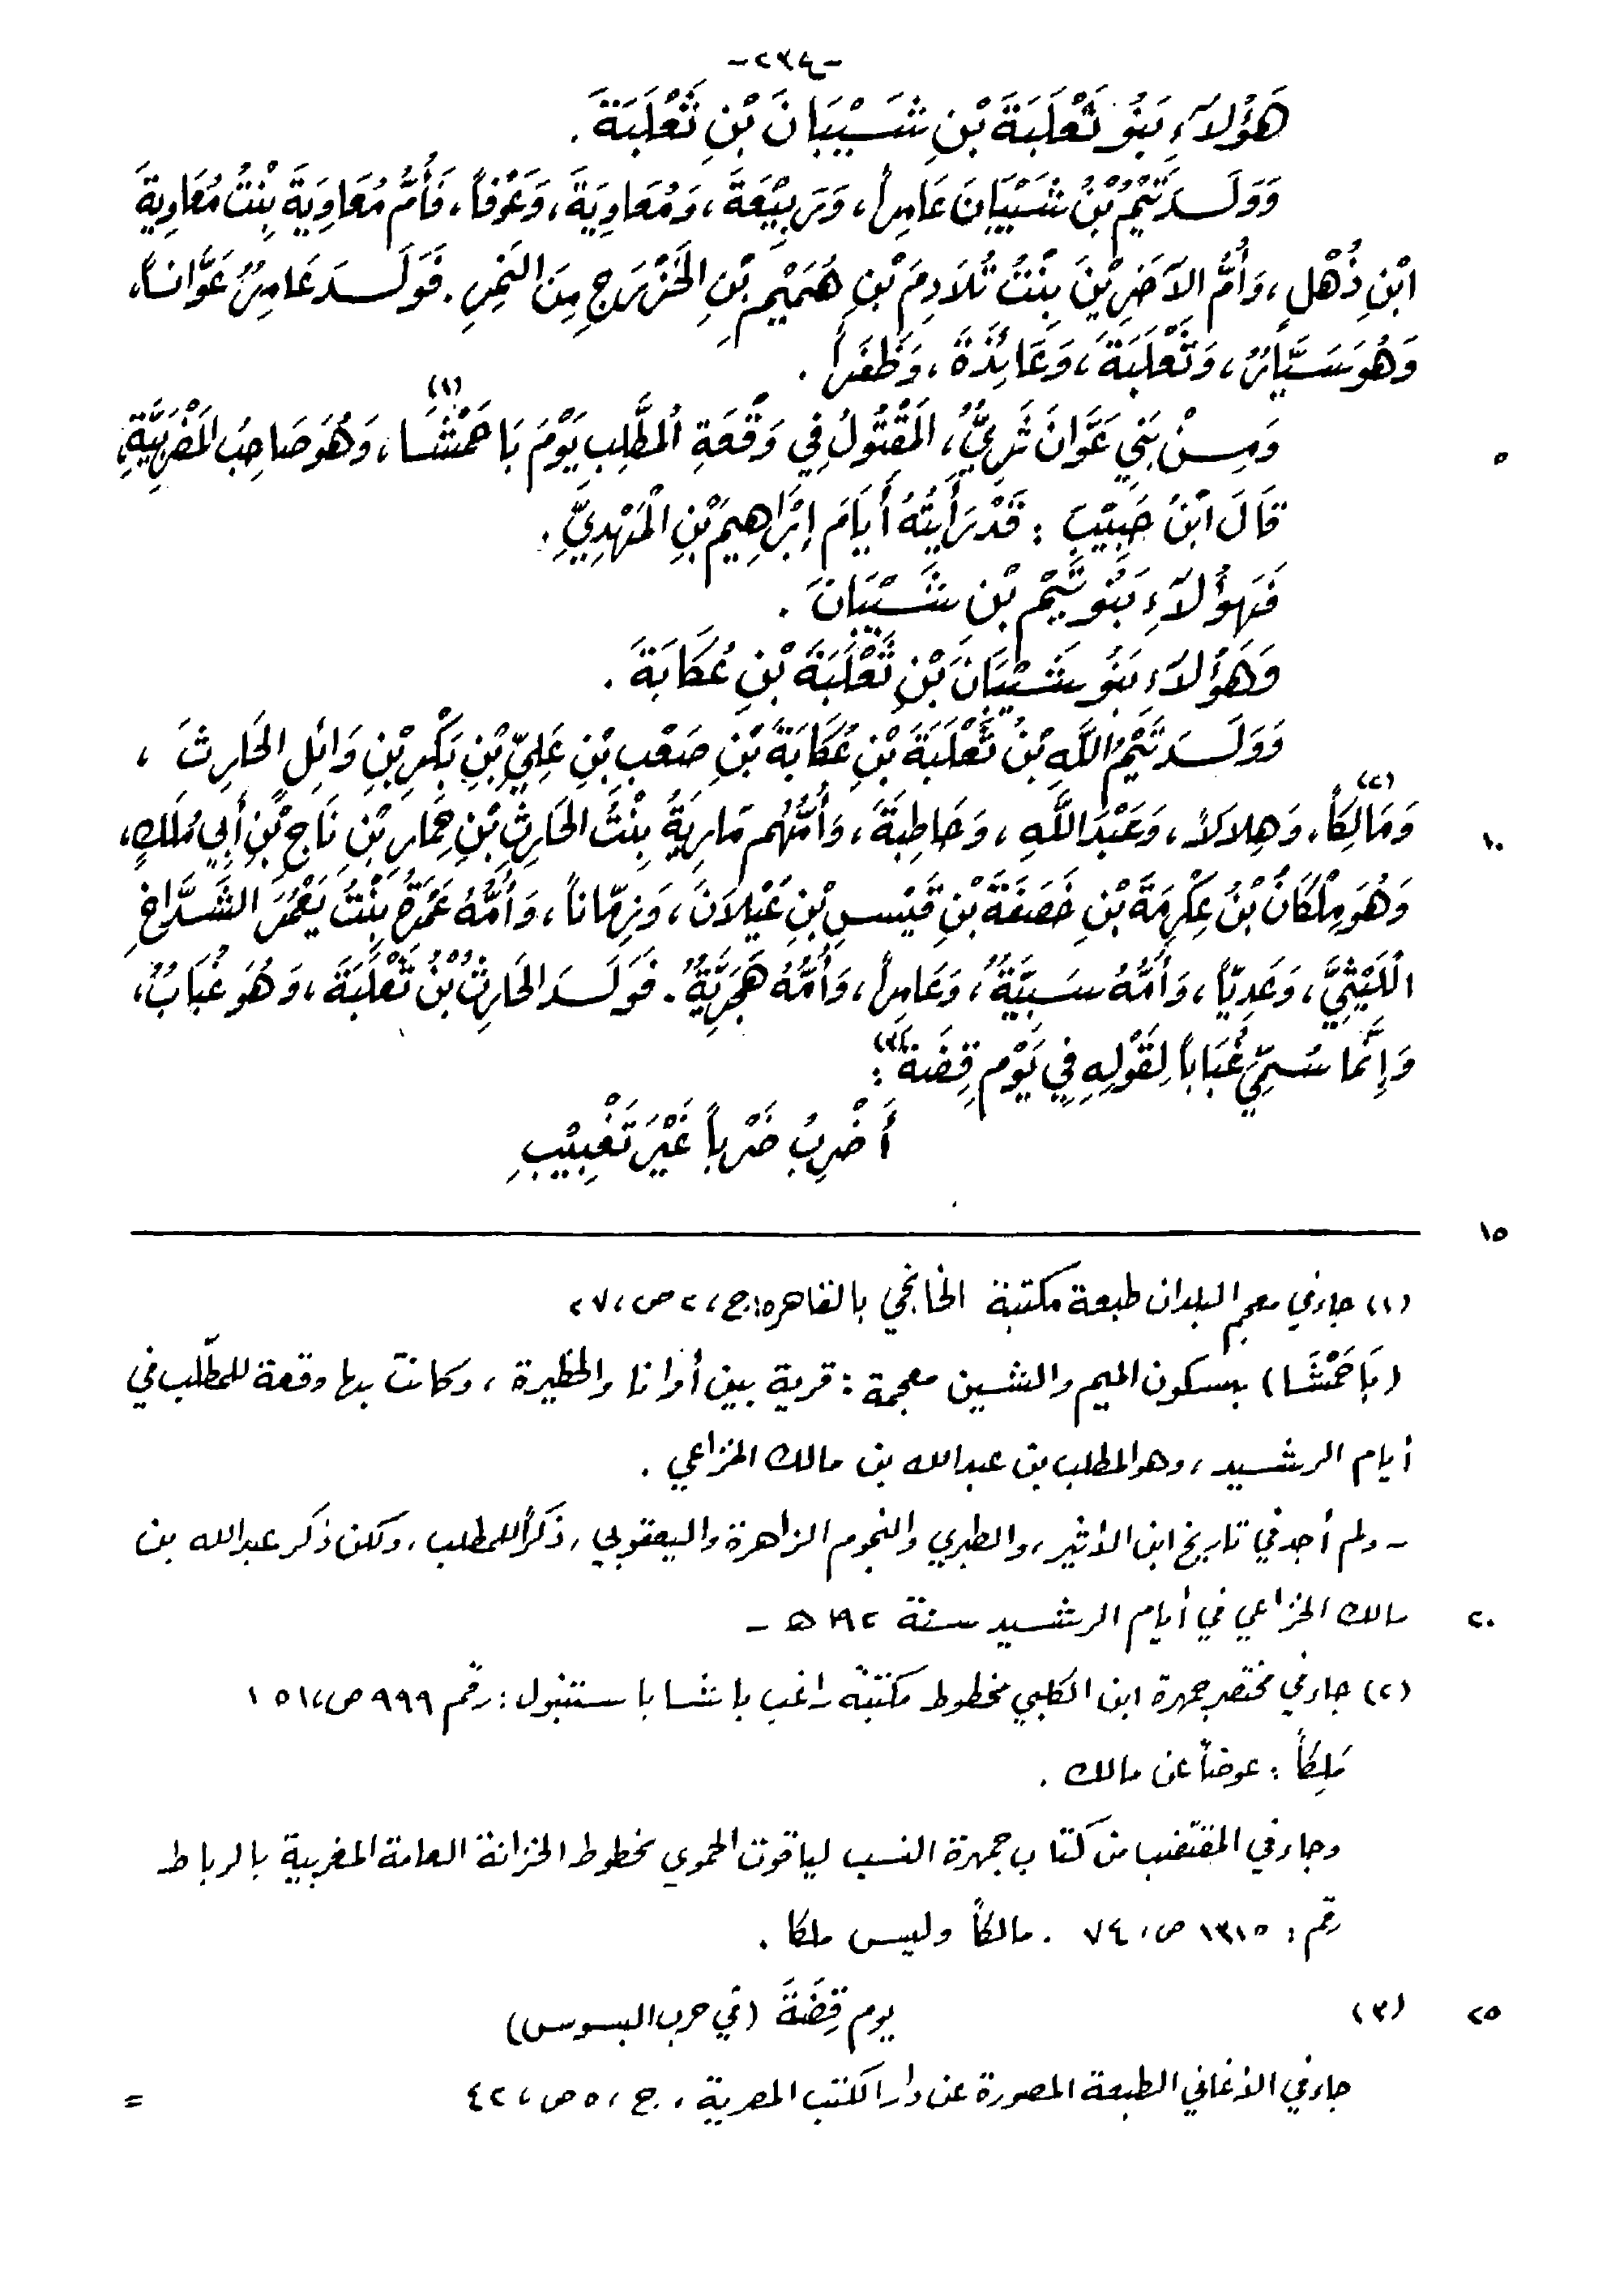 -٢٣٤-
هَؤُلاَءِ بَنُو ثَعْلَبَةَ بْنِ شَيْبَانَ بْنِ ثَعْلَبَةَ .
وَوَلَدَ تَيْمُ بْنُ شَيْبَانَ عَامِراً، وَرَبِيْعَةَ، وَمُعَاوِيَةَ، وَعَوْفاً، فَأُمُّ مُعَاوِيَةَ بِنْتُ مُعَاوِيَةَ
ابْنِ ذُهْلٍ، وَأُمُّ الآخَرِيْنَ بِنْتُ تُلَادِمَ بْنِ هُمَيْمِ بْنِ الخَزْرَجِ مِنَ النَّمِرِ. فَوَلَدَ عَامِرٌ عَوَّاناً،
وَهُوَ سَيَّارٌ، وَثَعْلَبَةَ، وَعَائِذَةَ، وَظَفَراً .
٥ وَمِنْ بَنِي عَوَّانَ ثَرِيٌّ، المَقْتُولُ فِي وَقْعَةِ المُطَّلِبِ يَوْمَ بَاحَمْشَا(١)، وَهُوَ صَاحِبُ المَضْرَبِيَّةِ،
قَالَ ابْنُ حَبِيْبَ : قَدْ رَأَيْتُهُ أَيَامَ إِبْرَاهِيمَ بْنِ الْمَهْدِيِّ .
فَهَؤُلاَءِ بَنُو تَيْمِ بْنِ شَيْبَانَ .
وَهَؤُلاَءِ بَنُو شَيْبَانَ بْنِ ثَعْلَبَةَ بْنِ عُكَابَةَ .
وَوَلَدَ تَيْمُ اللَّهِ بْنُ ثَعْلَبَةَ بْنِ عُكَابَةَ بْنِ صَعْبِ بْنِ عَلِيِّ بْنِ بَكْرِ بْنِ وَائِلٍ الحَارِثَ ،
١٠ وَمَالِكاً(٢)، وَهِلاَلاً، وَعَبْدَ اللَّهِ، وَحَاطِبَةَ، وَأُمُّهُم مَارِيَةُ بِنْتُ الحَارِثِ بْنِ حِمَارِ بْنِ نَاجِ بْنِ أَبِي مُلَكٍ،
وَهُوَ مِلْكَانُ بْنُ عِكْرِمَةَ بْنِ خَصَفَةَ بْنِ قَيْسِ بْنِ عَيْلاَنَ، وَزِمَّاناً، وَأُمُّهُ عَمْرَةُ بِنْتُ يَعْمُرَ الشَّدَّاخِ
الْلَيْثِيِّ، وَعَدِيّاً، وَأُمُّهُ سَبِيَّةٌ، وَعَامِراً، وَأُمُّهُ هَجَرِيَّةٌ. فَوَلَدَ الحَارِثُ بْنُ ثَعْلَبَةَ، وَهُوَ غُبَابٌ،
وَإِنَّمَا سُمِّيَ غُبَاباً لِقَوْلِهِ فِي يَوْمِ قِضَةَ(٣) :
أَضْرِبُ ضَرْباً غَيْرَ تَغْبِيْبِ
١٥
(١) جاء في معجم البلدان طبعة مكتبة الخانجي بالقاهرة، ج، ٢ ص، ٢٧
(بَاحَمْشَا) بسكون الميم والشين معجمة : قرية بين أوانا والحظيرة ، وكانت بها وقعة للمطّلب في
أيام الرشيد ، وهو المطلب بن عبدالله بن مالك الخزاعي .
- ولم أجد في تاريخ ابن الأثير، والطبري والنجوم الزاهرة واليعقوبي، ذكراً للمطلب، ولكن ذكر عبدالله بن
٢٠ مالك الخزاعي في أيام الرشيد سنة ١٩٢ هـ -
(٢) جاء في مختصر جمهرة ابن الكلبي مخطوط مكتبة راغب باشا باستنبول : رقم ٩٩٩ ص، ١٥١
مَلِكاً : عوضاً عن مالك .
وجاء في المقتضب من كتاب جمهرة النسب لياقوت الحموي مخطوط الخزانة العامة المغربية بالرباط
رقم : ١٣١٥ ص، ٧٤ . مالكاً وليس ملكا .
٢٥ (٣) يوم قِضَةَ (في حرب البسوس)
جاء في الأغاني الطبعة المصورة عن دار الكتب المصرية ، ج ، ٥ ص، ٤٢ =